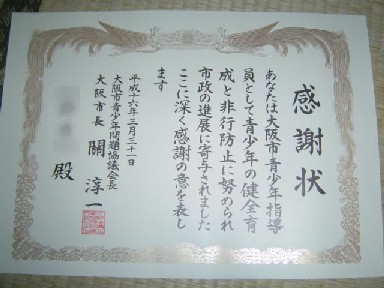 感謝状
あなたは大阪市青少年指導
員として青少年の健全育
成と非行防止に努められ
市政の進展に寄与されました
ここに深く感謝の意を表し
ます
平成十六年三月三十一日
大阪市青少年問題協議会長
大阪市長 關 淳一
殿